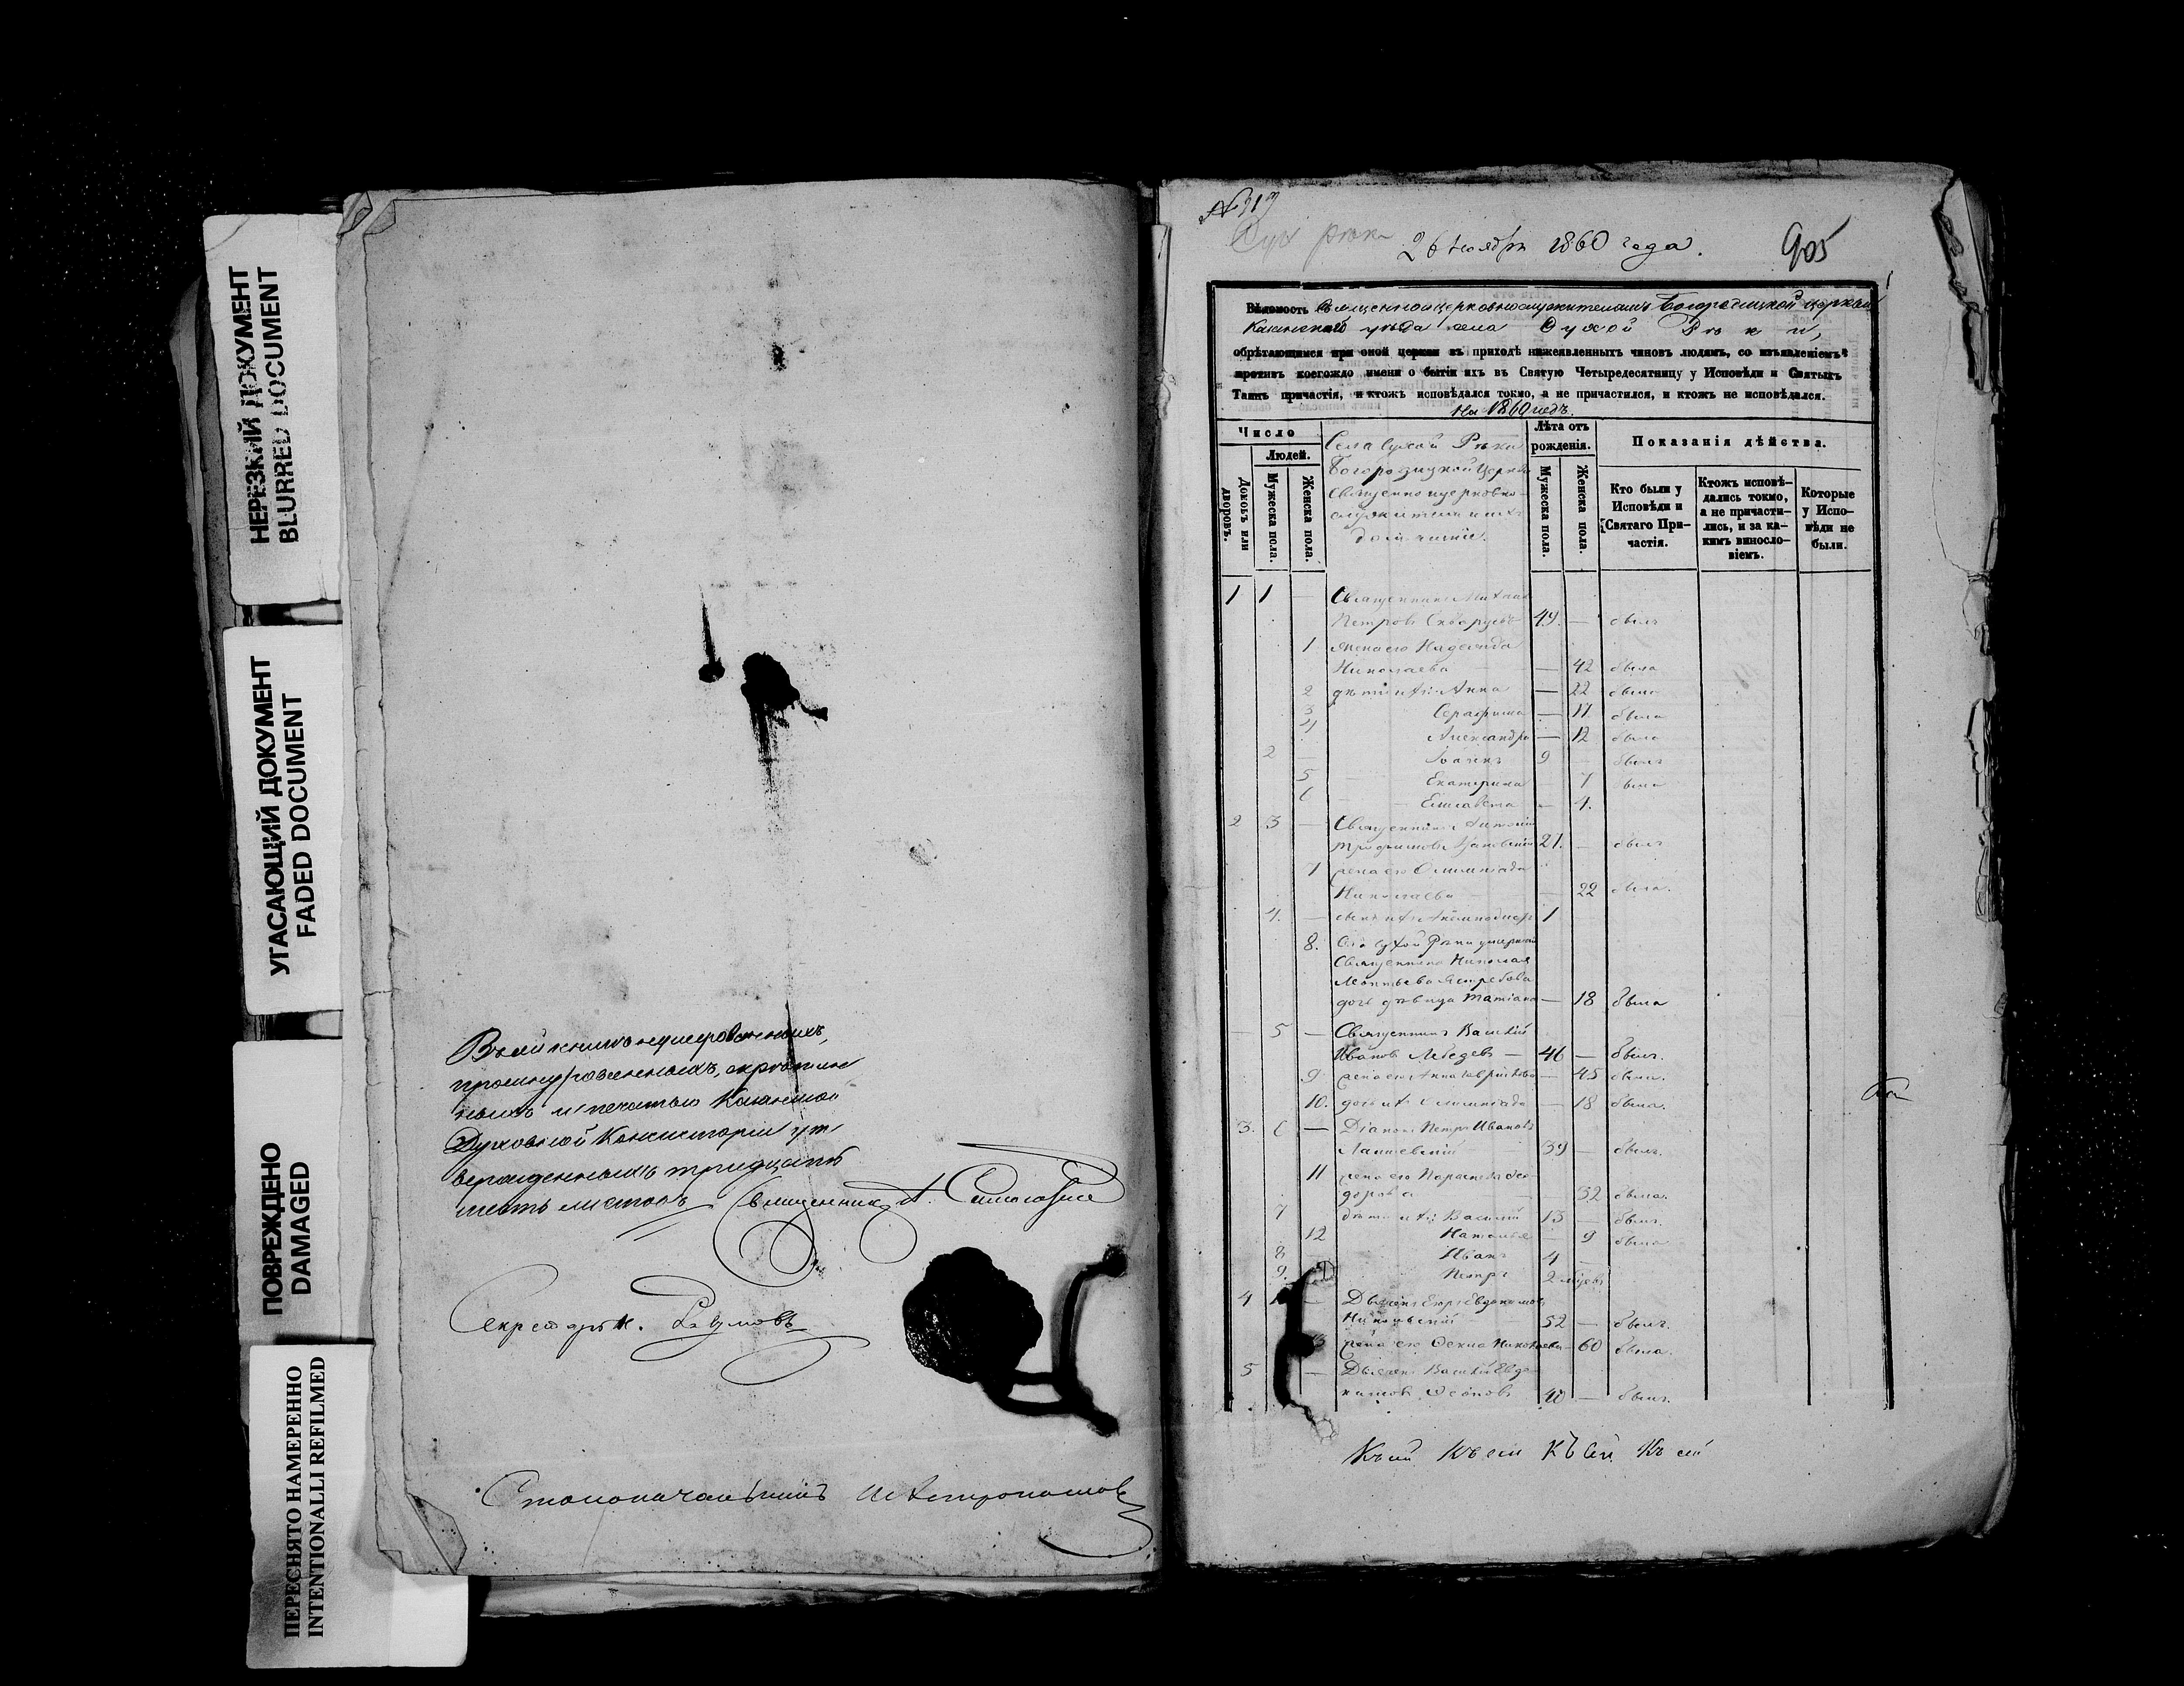 НЕРЕЗКИЙ ДОКУМЕНТ
BLURRED DOCUMENT
УГАСАЮЩИЙ ДОКУМЕНТ
FADED DOCUMENT
ПОВРЕЖДЕНО
DAMAGED
ПЕРЕСНЯТО НАМЕРЕННО
INTENTIONALLI REFILMED
Въ сей книгѣ нумерованныхъ,
прошнурованныхъ, скрѣплен
ныхъ и печатью Казанской
Духовной Консисторіи ут
вержденныхъ тридцать
шесть листовъ Священникъ А.
Секретарь
Столоначальникъ
26 Ноября 1860 года.
905
Вѣдомость Священноцерковнослужителямъ Богородицкой церкви
Казанскаго уѣзда села Сухой Рѣки,
обрѣтающимся при оной церкви въ приходѣ нижеявленныхъ чиновъ людямъ, со изъявленіемъ
противъ коегождо имени о бытіи ихъ въ Святую Четыредесятницу у Исповѣди и Святыхъ
Таинъ причастія, и ктожъ исповѣдался токмо, а не причастился, и ктожъ не исповѣдался.
На 1860 годъ.
Число
Людей.
Домовъ или дворовъ.
Мужеска пола.
Женска пола.
Села Сухой Рѣки
Богородицкой Церкви
Священно и церковно-
служители и ихъ
домашніе.
Лѣта отъ рожденія.
Мужеска пола.
Женска пола.
Показанія дѣйства.
Кто были у Исповѣди и Святаго Причастія.
Ктожъ исповѣдались токмо, а не причастились, и за какимъ винословіемъ.
Которые у Исповѣди не были.
1 1 — Священникъ Михаилъ
Петровъ 49. — былъ
1 жена его Надежда
Николаева — 42 была
2 дѣти ихъ: Анна — 22 была
3 Серафима — 17 была
4 Александра — 12 была
2 — 9 — былъ
5 Екатерина — 7 была
6 Елисавета — 4.
2 3 — Священникъ Антоній
27. — былъ
7 жена его Олимпіада
Николаева — 22 была.
4. — сынъ ихъ 1
8. Села Сухой Рѣки умершаго
Священника Николая
дочь дѣвица Татіана — 18 была
— 5 — Священникъ Василій
Ивановъ Лебедевъ — 46 — былъ.
9 жена его Анна — 45 была.
10. дочь ихъ Олимпіада — 18 была.
3. 6 — Діаконъ Петръ Ивановъ
39 — былъ.
11 жена его Параскева Ѳео
дорова 32 была.
7 дѣти ихъ: Василій 13 — былъ.
12 Наталья — 9 была
8 Иванъ 4 —
9. Петръ 2
4 — Дьячекъ
Никольскій 52 — былъ.
13 жена его Николаева — 60 была.
5 — Дьячекъ Василій Евдо
кимовъ 40 — былъ.
Къ сей Къ сей Къ сей Къ сей